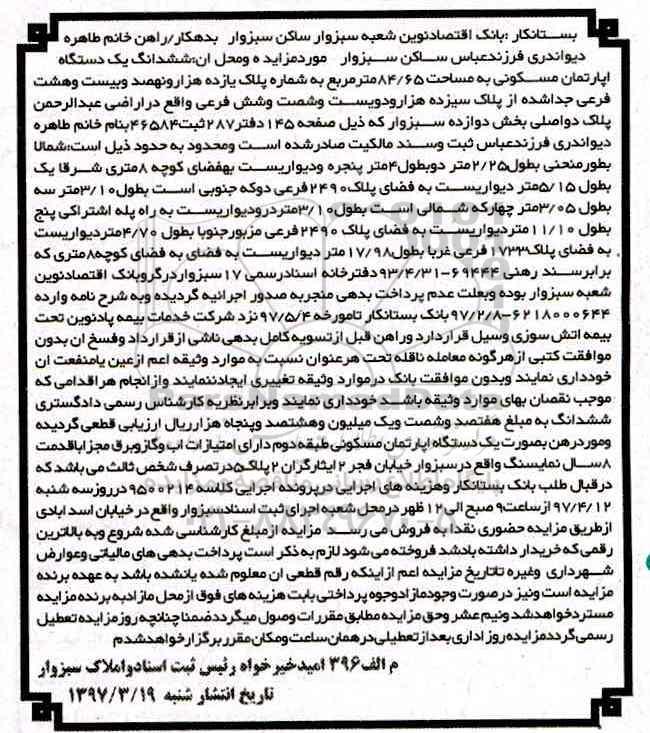 بستانکار :بانک اقتصادنوین شعبه سبزوار ساکن سبزوار بدهکار/راهن خانم طاهره
دیواندری فرزندعباس ساکن سبزوار موردمزایده ومحل ان:ششدانگ یک دستگاه
اپارتمان مسکونی به مساحت ۸۴/۶۵مترمربع به شماره پلاک یازده هزارونهصد وبیست وهشت
فرعی جداشده از پلاک سیزده هزارودویست وشصت وشش فرعی واقع دراراضی عبدالرحمن
پلاک دواصلی بخش دوازده سبزوار که ذیل صفحه ۱۴۵دفتر۲۸۷ثبت۴۶۵۸۴بنام خانم طاهره
دیواندری فرزندعباس ثبت وسند مالکیت صادرشده است ومحدود به حدود ذیل است؛شمالا
بطورمنحنی بطول۲/۲۵متر دوبطول۴متر پنجره ودیواریست بهفضای کوچه ۸متری شرقا یک
بطول ۵/۱۵متر دیواریست به فضای پلاک۲۴۹۰فرعی دوکه جنوبی است بطول۳/۱۰متر سه
بطول ۳/۰۵متر چهارکه شمالی است بطول۳/۱۰متردرودیواریست به راه پله اشتراکی پنج
بطول ۱۱/۱۰متردیواریست به فضای پلاک ۲۴۹۰ فرعی مزبورجنوبا بطول ۴/۷۰متردیواریست
به فضای پلاک۱۷۳۳فرعی غربا بطول۱۷/۹۸متر دیواریست به فضای به فضای کوچه۸متری که
برابرسند رهنی ۶۹۴۴۴-۹۳/۴/۳۱دفترخانه اسنادرسمی ۱۷سبزواردرگروبانک اقتصادنوین
شعبه سبزوار بوده وبعلت عدم پرداخت بدهی منجربه صدور اجرائیه گردیده وبه شرح نامه وارده
۶۲۱۸۰۰۰۶۴۴-۹۷/۲/۸بانک بستانکار تامورخه ۹۷/۵/۴ نزد شرکت خدمات بیمه پادنوین تحت
بیمه اتش سوزی وسیل قراردارد وراهن قبل ازتسویه کامل بدهی ناشی ازقرارداد وفسخ ان بدون
موافقت کتبی ازهرگونه معامله ناقله تحت هرعنوان نسبت به موارد وثیقه اعم ازعین یامنفعت ان
خودداری نمایند وبدون موافقت بانک درموارد وثیقه تغییری ایجادننمایند وازانجام هراقدامی که
موجب نقصان بهای موارد وثیقه باشد خودداری نمایند وبرابرنظریه کارشناس رسمی دادگستری
ششدانگ به مبلغ هفتصد وشصت ویک میلیون وهشتصد وپنجاه هزارریال ارزیابی قطعی گردیده
وموردرهن بصورت یک دستگاه اپارتمان مسکونی طبقه دوم دارای امتیازات اب وگازوبرق مجزاباقدمت
۸سال نمایسنگ واقع درسبزوار خیابان فجر ۲ ایثارگران ۲پلاک۵درتصرف شخص ثالث می باشد که
درقبال طلب بانک بستانکار وهزینه های اجرایی درپرونده اجرایی کلاسه ۹۵۰۰۲۱۴ درروزسه شنبه
۹۷/۴/۱۲ ازساعت۹ صبح الی۱۲ ظهر درمحل شعبه اجرای ثبت اسنادسبزوار واقع در خیابان اسد ابادی
ازطریق مزایده حضوری نقدا به فروش می رسد مزایده ازمبلغ کارشناسی شده شروع وبه بالاترین
رقمی که خریدار داشته بادشد فروخته می شود لازم به ذکر است پرداخت بدهی های مالیاتی وعوارض
شهرداری وغیره تاتاریخ مزایده اعم ازاینکه رقم قطعی ان معلوم شده یانشده باشد به عهده برنده
مزایده است ونیز درصورت وجودمازادوجوه پرداختی بابت هزینه های فوق ازمحل مازادبه برنده مزایده
مستردخواهدشد ونیم عشر وحق مزایده مطابق مقررات وصول میگردد ضمنا چنانچه روز مزایده تعطیل
رسمی گرددمزایده روز اداری بعداز تعطیلی درهمان ساعت ومکان مقرر برگزار خواهدشد م
م الف۳۹۶ امید خیرخواه رئیس ثبت اسنادواملاک سبزوار
تاریخ انتشار شنبه ۱۳۹۷/۳/۱۹